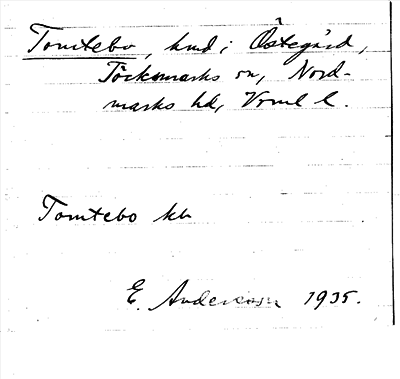 Tomtebo, hmd i Östegård,
Töcksmarks sn, Nord-
marks hd, Vrml l.
Tomtebo kb
E. Anderson 1935.